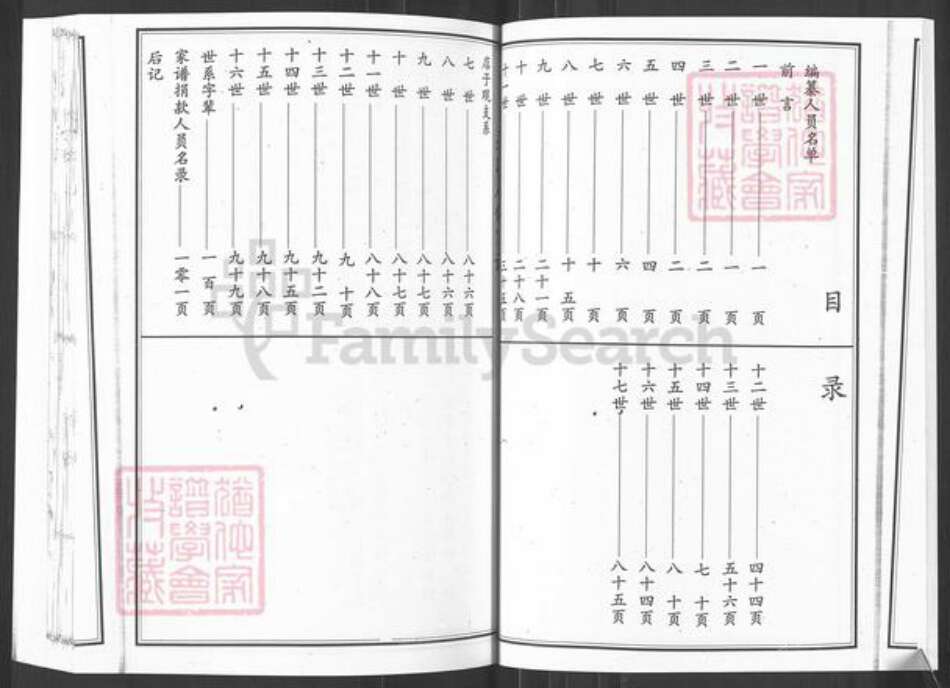 目录
编纂人员名单
前言
一世 一页
二世 一页
三世 二页
四世 二页
五世 四页
六世 六页
七世 十页
八世 十五页
九世 二十一页
十世 二十八页
十一世 三十五页
十二世 四十四页
十三世 五十六页
十四世 七十页
十五世 八十页
十六世 八十四页
十七世 八十五页
店子观支系
七世 八十六页
八世 八十六页
九世 八十七页
十世 八十七页
十一世 八十八页
十二世 九十页
十三世 九十二页
十四世 九十五页
十五世 九十八页
十六世 九十九页
世系字辈 一百页
家谱捐款人员名录 一零一页
后记
FamilySearch
猶他家
譜學會
特藏
猶他家
譜學會
特藏